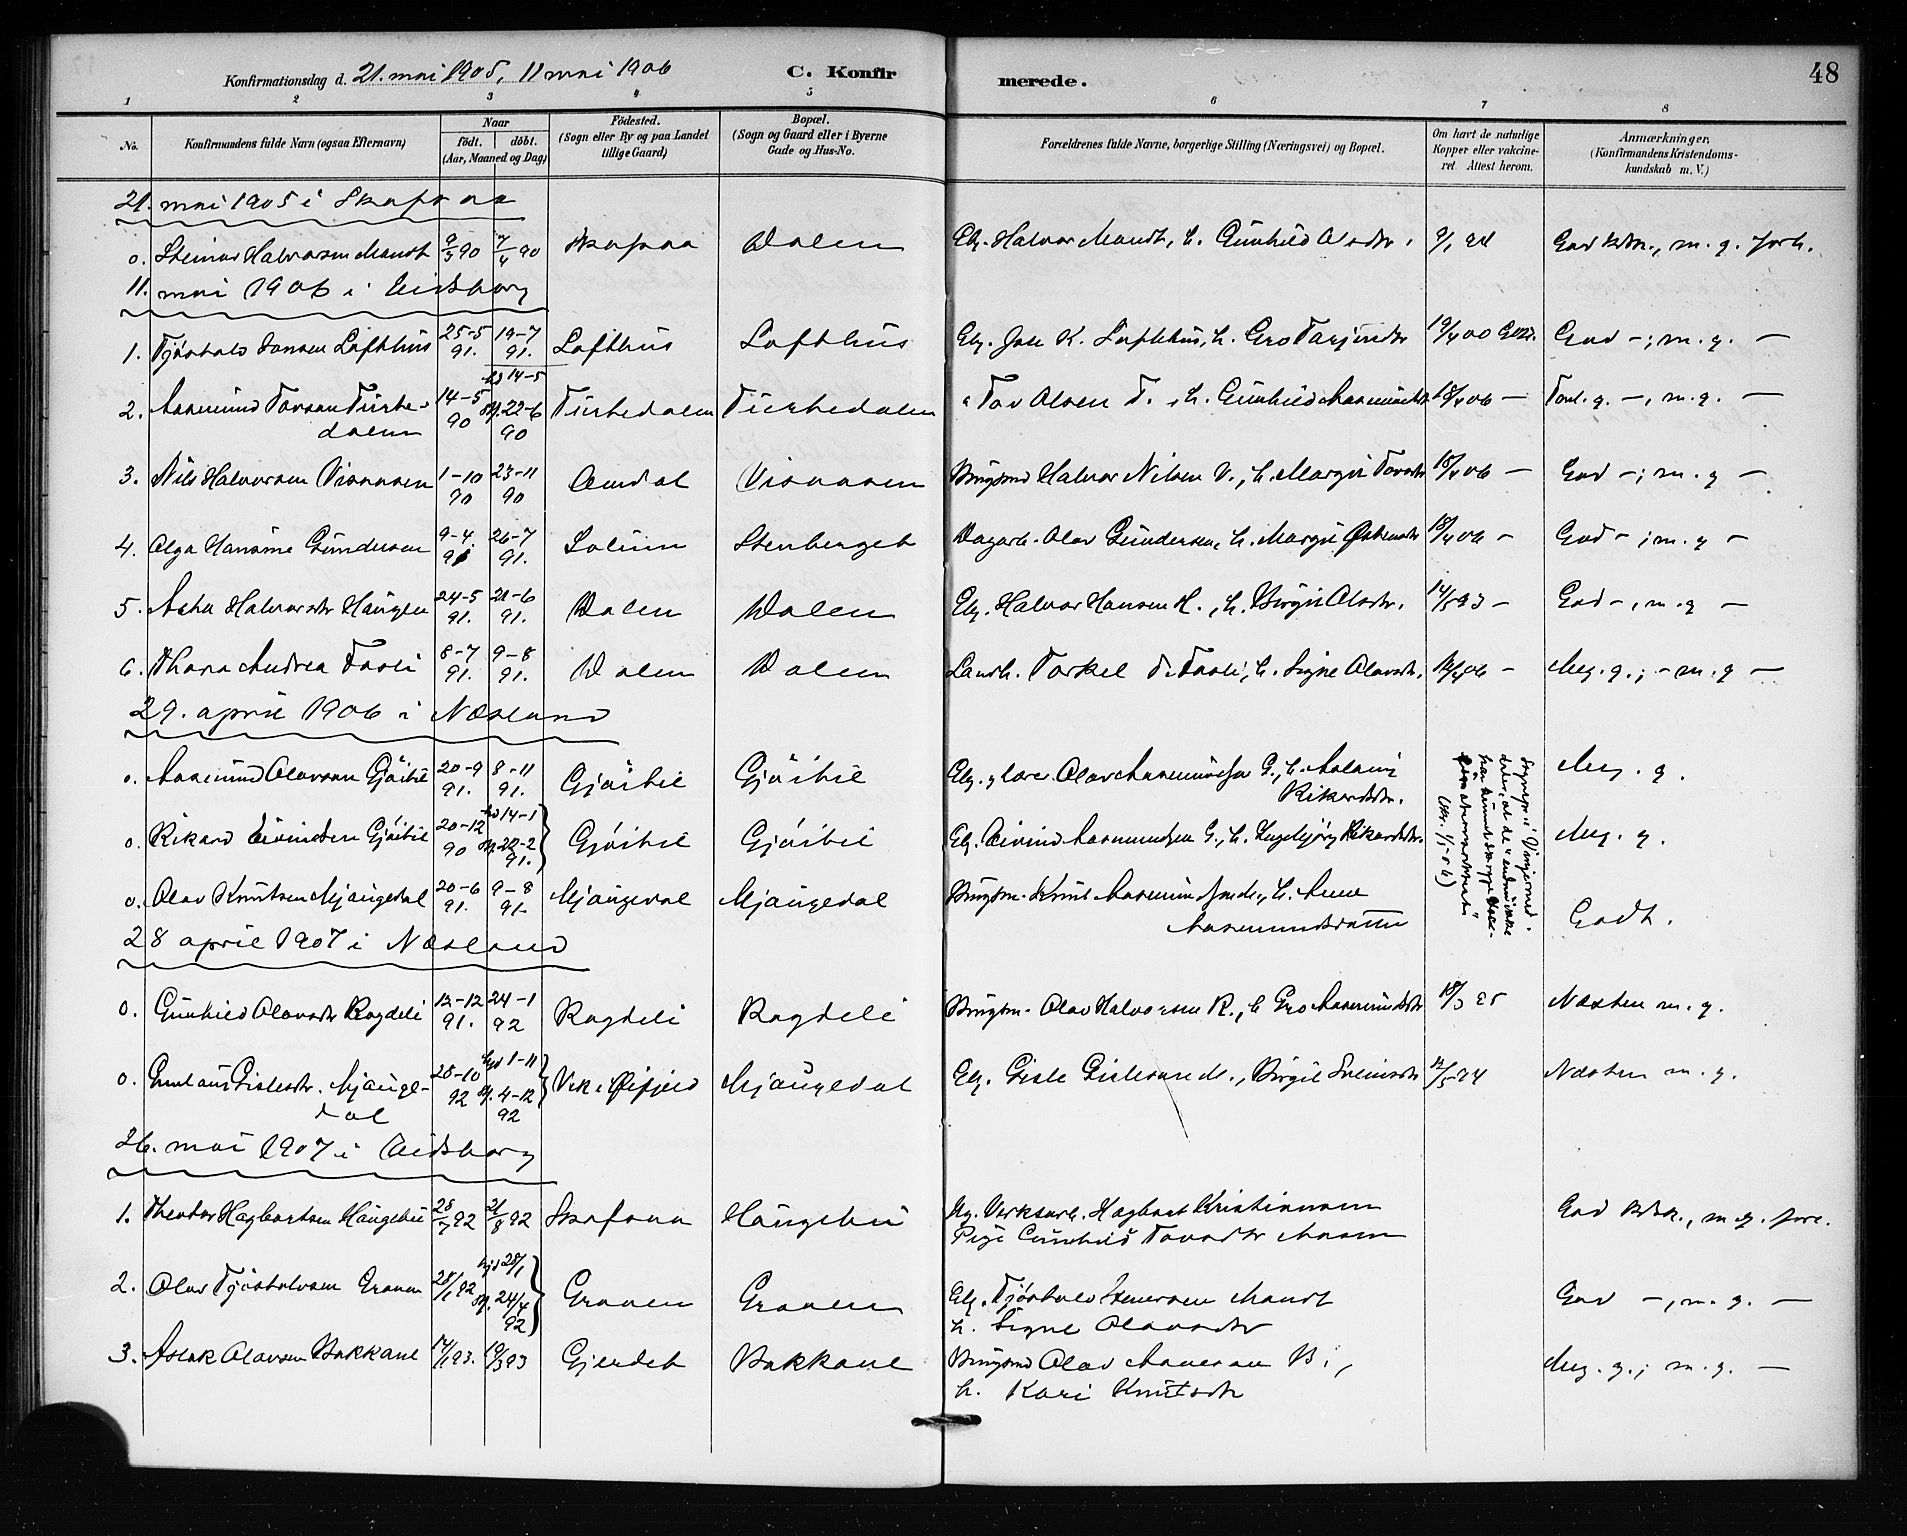 Konfirmationsdag d. 21. mai 1905, 11 mai 1906 C. Konfir merede. 48
1 2 3 4 5 6 7 8
No. Konfirmandens fulde Navn (ogsaa Efternavn)
Naar
födt. döbt.
(Aar, Maaned og Dag)
Födested.
(Sogn eller By og paa Landet
tillige Gaard)
Bopæl.
(Sogn og Gaard eller i Byerne
Gade og Hus-No.
Forældrenes fulde Navne, borgerlige Stilling (Næringsvei) og Bopæl.
Om havt de naturlige
Kopper eller vakcine-
ret Attest herom.
Anmærkninger,
(Konfirmandens Kristendoms-
kundskab m. V.)
21. mai 1905 i Skafsaa
o. Steinar Halvorsen Mandt 9/3 90 7/4 90 Skafsaa Dalen Elg. Halvor Mandt, h. Gunhild Olsdtr. God kdsk., m. g. forh.
11. mai 1906 i Eidsborg
1. Tjöstolv Jonsen Lofthus 25-5 91. 19-7 91. Lofthus Lofthus Elg. Jon K. Lofthus, h. Gro Tarjeisdtr 19/4 00 God -; m. g. -
2. Aasmund Tovsen Turke-
dalen 14-5 90 14-5 22-6 90 Turkedalen Turkedalen " Tov Olsen T., h. Gunhild Aasmundsdtr 18/4 06 - Tml. g. -, m. g. -
3. Nils Halvorsen Visaasen 1-10 90 23-11 90 Amdal Visaasen Brugsmd Halvor Nilsen V., h. Margit Tovsdtr 18/4 06 - God -; m. g -
4. Olga Hansine Gundersen 9-4 91 26-7 91. Solum Stenberget Dagarb. Olav Gundersen, h. Margit 18/4 06 - God -; m. g -
5. Aasta Halvorsdtr Haugen 24-5 91. 21-6 91. Dalen Dalen Elg. Halvor Hansen H., h. Birgit Olsdtr. 14/5 93 - God -, m. g -
6. Thora Andrea Fosli 8-7 91. 9-8 91. Dalen Dalen Landh. Torkel T. Fosli, h. Signe Olavsdtr. Meg. g.; - m. g -
29. april 1906 i Næsland
o. Aasmund Olavsen Gjöitil 20-9 91. 8-11 91. Gjöitil Gjöitil Elg. g lær. Olav Aasmundsen G., h.
Rikardsdtr. Meg. g.
o. Rikard Eivindsen Gjöitil 20-12 90 14-1 22-2 91. Gjöitil Gjöitil Elg. Eivind Aasmundsen G., h. Ingebjörg Rikardsdtr. Meg. g.
o. Olav Knutsen Mjaugedal 20-6 91. 9-8 91. Mjaugedal Mjaugedal Brugsm. Knut Aasmundsen, h. Anne
Aasmundsdatter Godt.
28 april 1907 i Næsland
o. Gunhild Olavsdtr Rogdeli 12-12 91. 24-1 92 Rogdeli Rogdeli Brugsm. Olav Halvorsen R., h Gro Aasmundsdtr 18/3 95 Næsten m. g.
o. Gislesdtr. Mjauge-
dal 28-10 92 1-11 4-12 92 Vik i Øifjeld Mjaugedal Elg. Gisle Gislesen M., Birgit Sveinsdtr Næsten m. g.
26. mai 1907 i Eidsborg
1. Theodor Hagbartsen Haugebu 28/7 92 21/8 92 Skafsaa Haugebu Ug. Verksarb. Hagbart Kristiansen
Pige Gunhild Tovsdtr Moen God kdsk., m. g. forh.
2. Olav Tjöstolvsen Graven 28/1 92 28/1 24/4 92 Graven Graven Elg. Tjöstolv Steinersen Mandt
h. Signe Olavsdtr God -, m. g. -
3. Aslak Olavsen Bakkane 17/1 93. 19/3 93 Gjerdet Bakkane Brugsmd Olav Aanesen B.,
h. Kari Knutsdtr Meg. g.; m. g. -